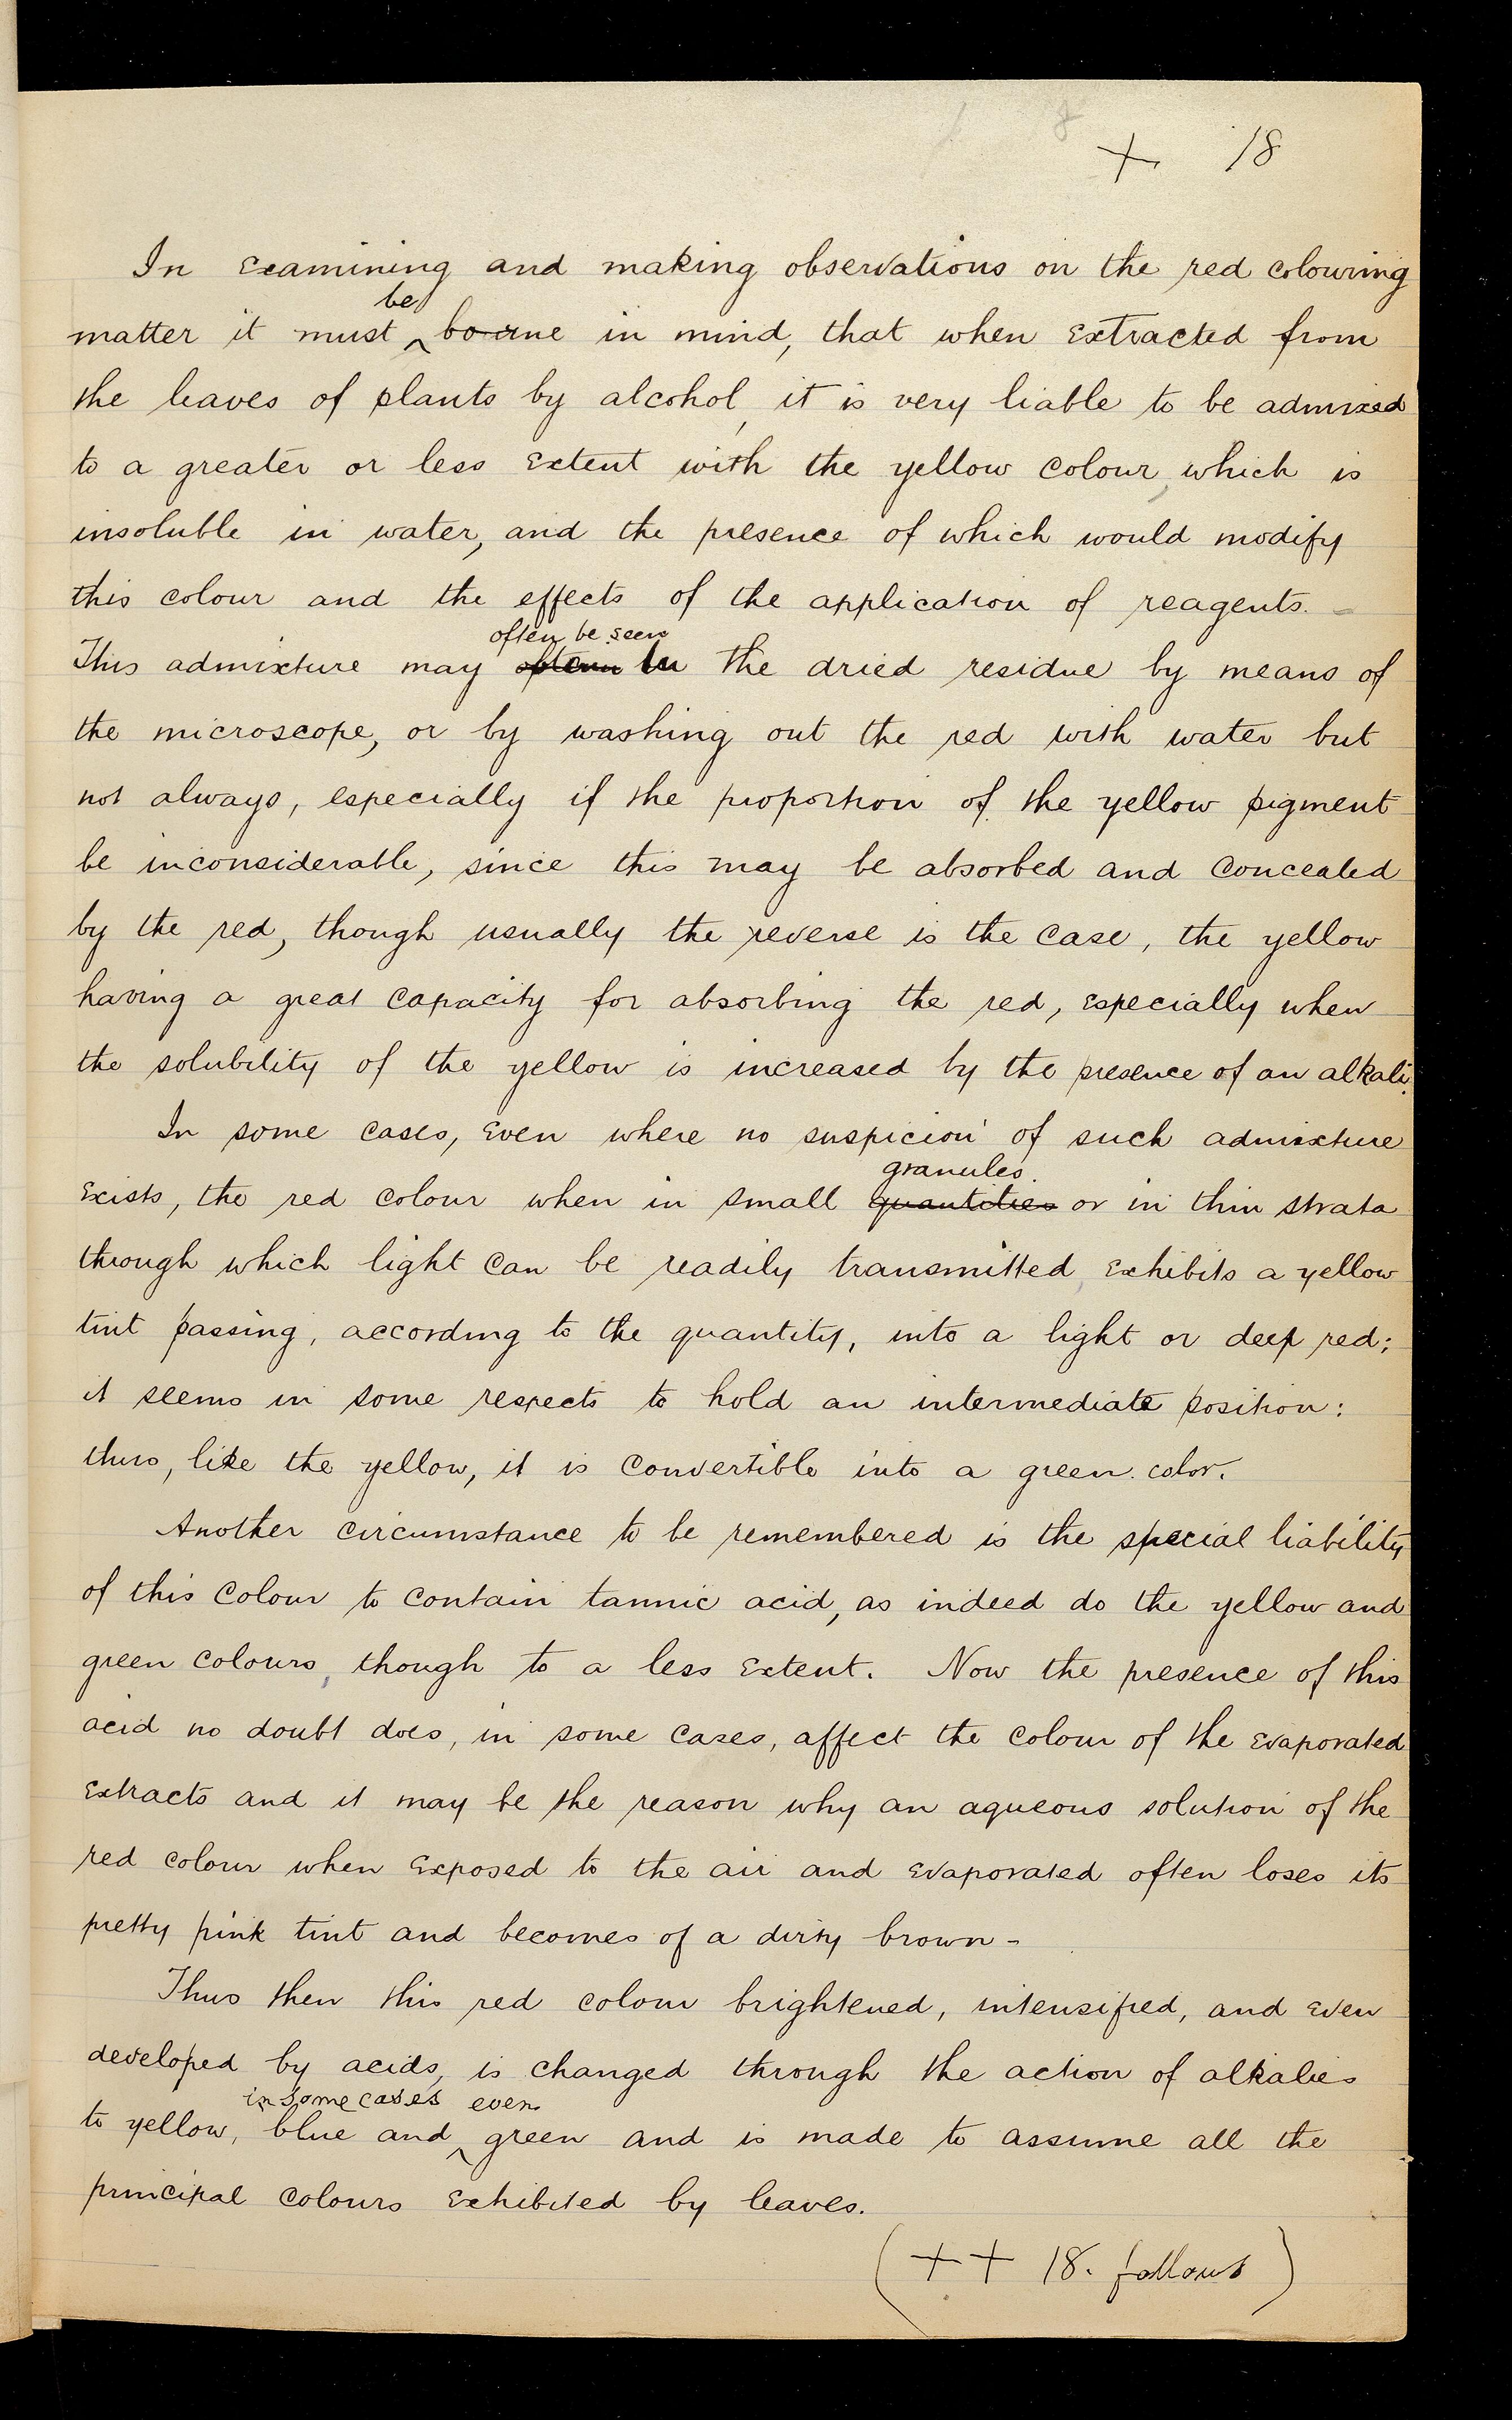 + 18
In examining and making observations on the red colouring
be
matter it must ^ bourne in mind, that when extracted from
the leaves of plants by alcohol, it is very liable to be admixed
to a greater or less extent with the yellow colour, which is
insoluble in water, and the presence of which would modify
this colour and the effects of the application of reagents. -
often be seen
This admixture may in the dried residue by means of
the microscope, or by washing out the red with water but
not always, especially if the proportion of the yellow pigment
be inconsiderable, since this may be absorbed and concealed
by the red, though usually the reverse is the case, the yellow
having a great capacity for absorbing the red, especially when
the solubility of the yellow is increased by the presence of an alkali.
In some cases, even where no suspicion of such admixture
granules.
exists, the red colour when in small quantities or in thin strata
through which light can be readily transmitted, exhibits a yellow
tint passing, according to the quantity, into a light or deep red;
it seems in some respects to hold an intermediate position:
thus, like the yellow, it is convertible into a green color.
Another circumstance to be remembered is the special liability
of this colour to contain tannic acid, as indeed do the yellow and
green colours, though to a less extent. Now the presence of this
acid no doubt does, in some cases, affect the colour of the evaporated
extracts and it may be the reason why an aqueous solution of the
red colour when exposed to the air and evaporated often loses its
pretty pink tint and becomes of a dirty brown -
Thus then this red colour brightened, intensified, and even
developed by acids, is changed through the action of alkalies
in some cases even
to yellow, blue and ^ green and is made to assume all the
principal colours exhibited by leaves.
(++ 18. follows)